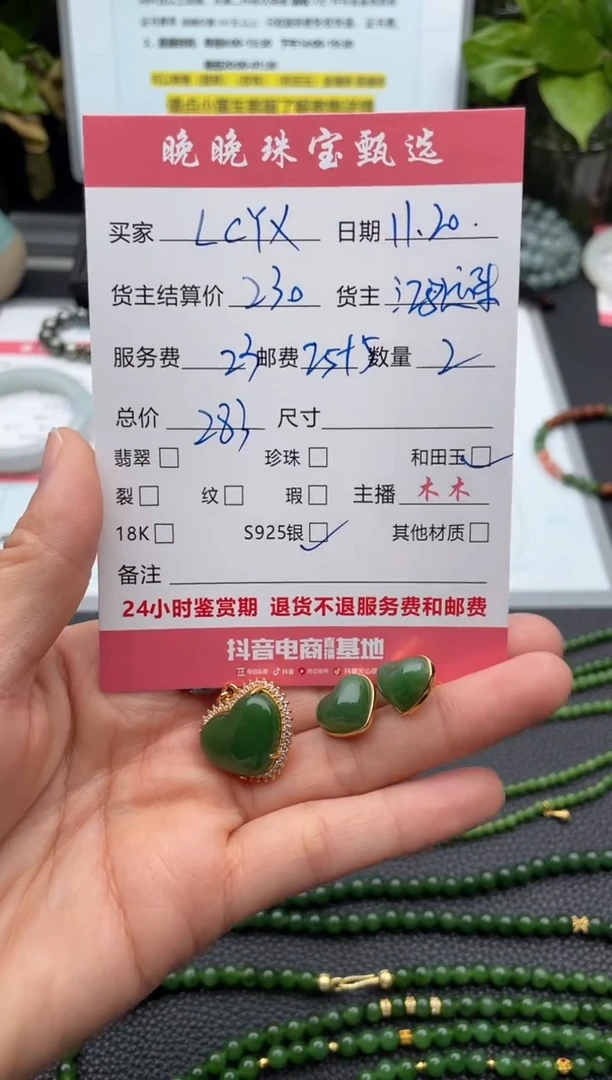 晚晚珠宝甄选
买家 LCYX 日期 11.20.
货主结算价 230 货主
服务费 23 邮费 25+5 数量 2
总价 283 尺寸
翡翠 珍珠 和田玉
裂 纹 瑕 主播 木木
18K S925银 其他材质
备注
24小时鉴赏期 退货不退服务费和邮费
抖音电商直播基地
今日头条 抖音 西瓜视频 抖音火山版